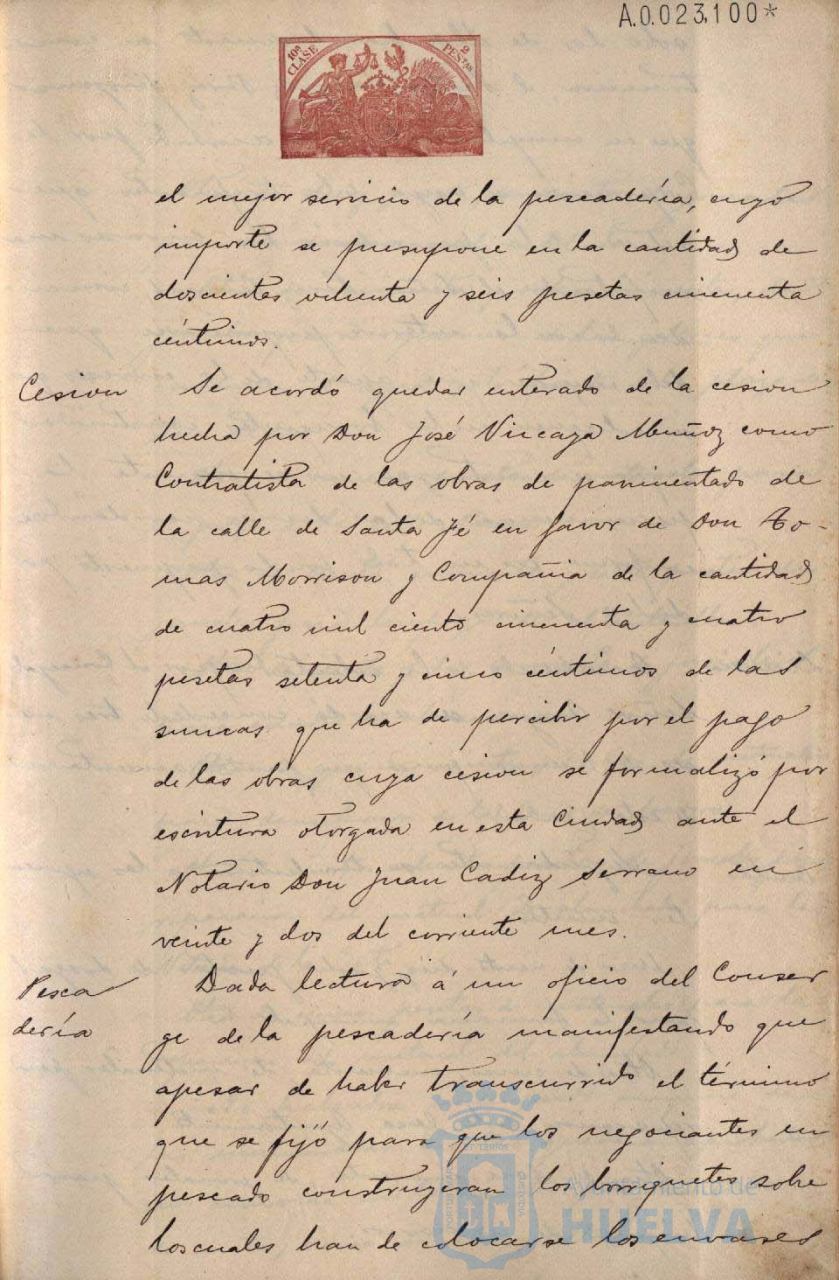 A.0.023,100*
10ª CLASE
2 PESTAS
el mejor servicio de la pescadería, cuyo
importe se presupone en la cantidad de
doscientas ochenta y seis pesetas cincuenta
céntimos.
Cesion Se acordó quedar enterado de la cesion
hecha por Don José Vizcaya Muñoz como
Contratista de las obras de pavimentado de
la calle de Santa Fé en favor de Don To-
mas Morrison y Compañia de la cantidad
de cuatro mil ciento cincuenta y cuatro
pesetas setenta y cinco céntimos de las
sumas que ha de percibir por el pago
de las obras cuya cesion se formalizó por
escritura otorgada en esta Ciudad ante el
Notario Don Juan Cadiz Serrano en
veinte y dos del corriente mes.
Pesca
dería
Dada lectura á un oficio del Conser
ge de la pescadería manifestando que
apesar de haber transcurrido el término
que se fijó para que los negociantes en
pescado construyeran los borriquetes sobre
los cuales han de colocarse los envases
Ayuntamiento de
HUELVA